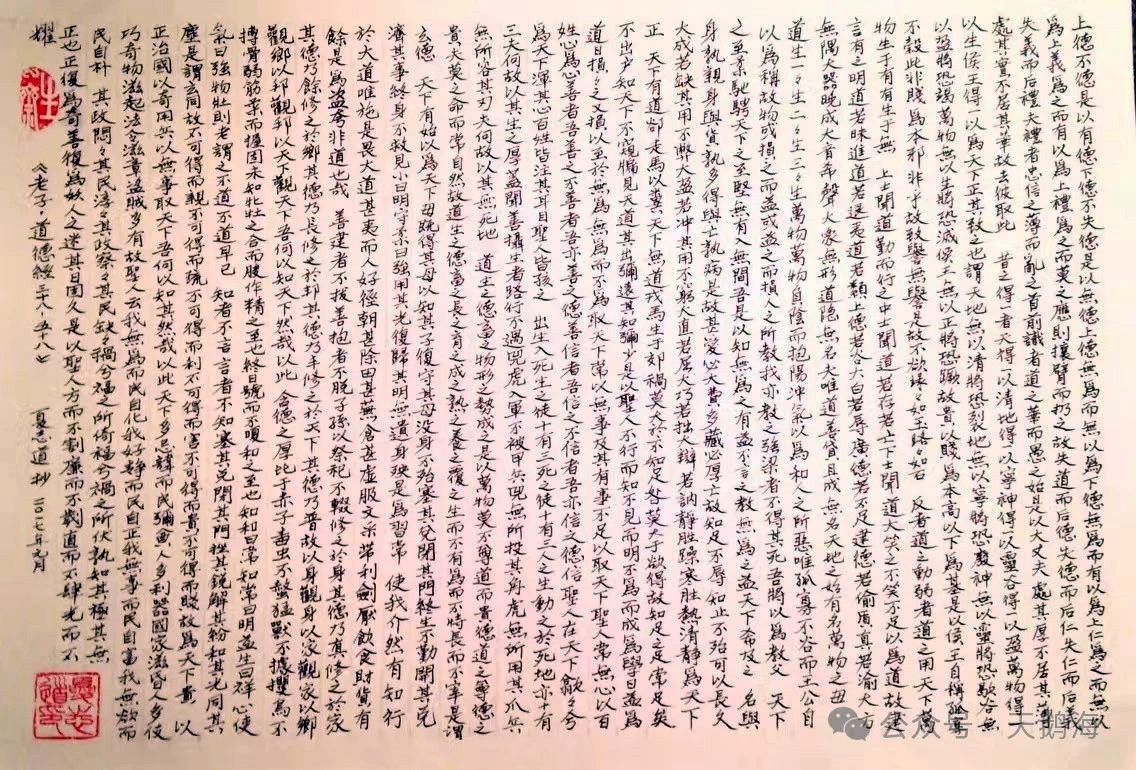 上德不德是以有德下德不失德是以無德上德無為而無以為下德無為而有以為上仁為之而無以
為上義為之而有以為上禮為之而莫之應則攘臂而扔之故失道而后德失德而后仁失仁而后義
失義而后禮夫禮者忠信之薄而亂之首前識者道之華而愚之始是以大丈夫處其厚不居其薄
處其實不居其華故去彼取此 昔之得一者天得一以清地得一以寧神得一以靈谷得一以盈萬物得一
以生侯王得一以為天下正其致之也謂天地無以清將恐裂地無以寧將恐廢神無以靈將恐歇谷無
以盈將恐竭萬物無以生將恐滅侯王無以正將恐蹶故貴以賤為本高以下為基是以侯王自稱孤寡
不穀此非賤為本邪非乎故致譽無譽是故不欲琭々如玉珞々如石 反者道之動弱者道之用天下萬
物生于有有生于無 上士聞道勤而行之中士聞道若存若亡下士聞道大笑之不笑不足以為道故建
言有之明道若昧進道若退夷道若纇上德若谷大白若辱廣德若不足建德若偷質真若渝大方
無隅大器晚成大音希聲大象無形道隱無名夫唯道善貸且成 無名天地之始有名萬物之母
道生一々生二々生三々生萬物萬物負陰而抱陽沖氣以為和人之所惡唯孤寡不谷而王公自
以為稱故物或損之而益或益之而損人之所教我亦教之強梁者不得其死吾將以為教父 天下
之至柔馳騁天下之至堅無有入無間吾是以知無為之有益不言之教無為之益天下希及之 名與
身孰親身與貨孰多得與亡孰病是故甚愛必大費多藏必厚亡故知足不辱知止不殆可以長久
大成若缺其用不弊大盈若沖其用不窮大直若屈大巧若拙大辯若訥靜勝躁寒勝熱清靜為天下
正 天下有道卻走馬以糞天下無道戎馬生于郊禍莫大於不知足咎莫大于欲得故知足之足常足矣
不出户知天下不窺牖見天道其出彌遠其知彌少是以聖人不行而知不見而明不為而成為學日益為
道日損々之又損以至於無為無為而不為取天下常以無事及其有事不足以取天下聖人常無心以百
姓心為心善者吾善之不善者吾亦善之德善信者吾信之不信者吾亦信之德信聖人在天下歙々兮
為天下渾其心百姓皆注其耳目聖人皆孩之 出生入死生之徒十有三死之徒十有三人之生動之於死地亦十有
三夫何故以其生之厚蓋聞善攝生者路行不遇兕虎入軍不被甲兵兕無所投其角虎無所用其爪兵
無所容其刃夫何故以其無死地 道生之德畜之物形之勢成之是以萬物莫不尊道而貴德道之尊德之
貴夫莫之命而常自然故道生之德畜之長之育之成之熟之養之覆之生而不有為而不恃長而不宰是謂
玄德 天下有始以為天下母既得其母以知其子復守其母没身不殆塞其兌閉其門終生不勤開其兌
濟其事終身不救見小曰明守柔曰強用其光復歸其明無遺身殃是為習常 使我介然有知行
於大道唯施是畏大道甚夷而人好徑朝甚除田甚無倉甚虛服文采帶利劍厭飲食財貨有
餘是為盜夸非道也哉 善建者不拔善抱者不脫子孫以祭祀不輟修之於身其德乃真修之於家
其德乃餘修之於鄉其德乃長修之於邦其德乃丰修之於天下其德乃普故以身觀身以家觀家以鄉
觀鄉以邦觀邦以天下觀天下吾何以知天下然哉以此 含德之厚比于赤子毒虫不螫猛獸不據攫鳥不
搏骨弱筋柔而握固未知牝牡之合而朘作精之至也終日號而不嗄和之至也知和曰常知常曰明益生曰祥心使
氣曰強物壯則老謂之不道不道早已 知者不言言者不知塞其兌閉其門挫其銳解其紛和其光同其
塵是謂玄同故不可得而親不可得而疏不可得而利不可得而害不可得而貴不可得而賤故為天下貴 以
正治國以奇用兵以無事取天下吾何以知其然哉以此天下多忌諱而民彌貧人多利器國家滋昏人多伎
巧奇物滋起法令滋章盜賊多有故聖人云我無為而民自化我好靜而民自正我無事而民自富我無欲而
民自朴 其政悶々其民淳々其政察々其民缺々禍兮福之所倚福兮禍之所伏孰知其極其無
正也正復為奇善復為妖人之迷其日固久是以聖人方而不割廉而不劌直而不肆光而不
燿
《老子·道德經三十八-五十八》 夏志道抄 二〇一七年元月
夏志道印
公众号·天鹅海